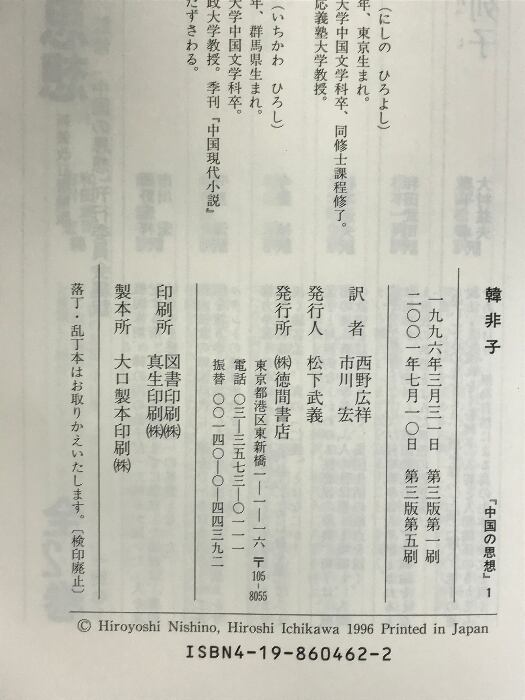 （にしの　ひろよし）
年、東京生まれ。
大学中国文学科卒、同修士課程修了。
応義塾大学教授。
（いちかわ　ひろし）
年、群馬県生まれ。
大学中国文学科卒。
政大学教授。季刊『中国現代小説』
たずさわる。
韓非子
『中国の思想』1
一九九六年三月三一日　第三版第一刷
二〇〇一年七月一〇日　第三版第五刷
訳者　西野広祥
市川　宏
発行人　松下武義
発行所　㈱徳間書店
東京都港区東新橋一―一―一六　〒105-8055
電話　〇三―三五七三―〇一一一
振替　〇〇一四〇―〇―四四三九二
印刷所　図書印刷㈱
真生印刷㈱
製本所　大口製本印刷㈱
落丁・乱丁本はお取りかえいたします。〔検印廃止〕
© Hiroyoshi Nishino, Hiroshi Ichikawa 1996 Printed in Japan
ISBN4-19-860462-2